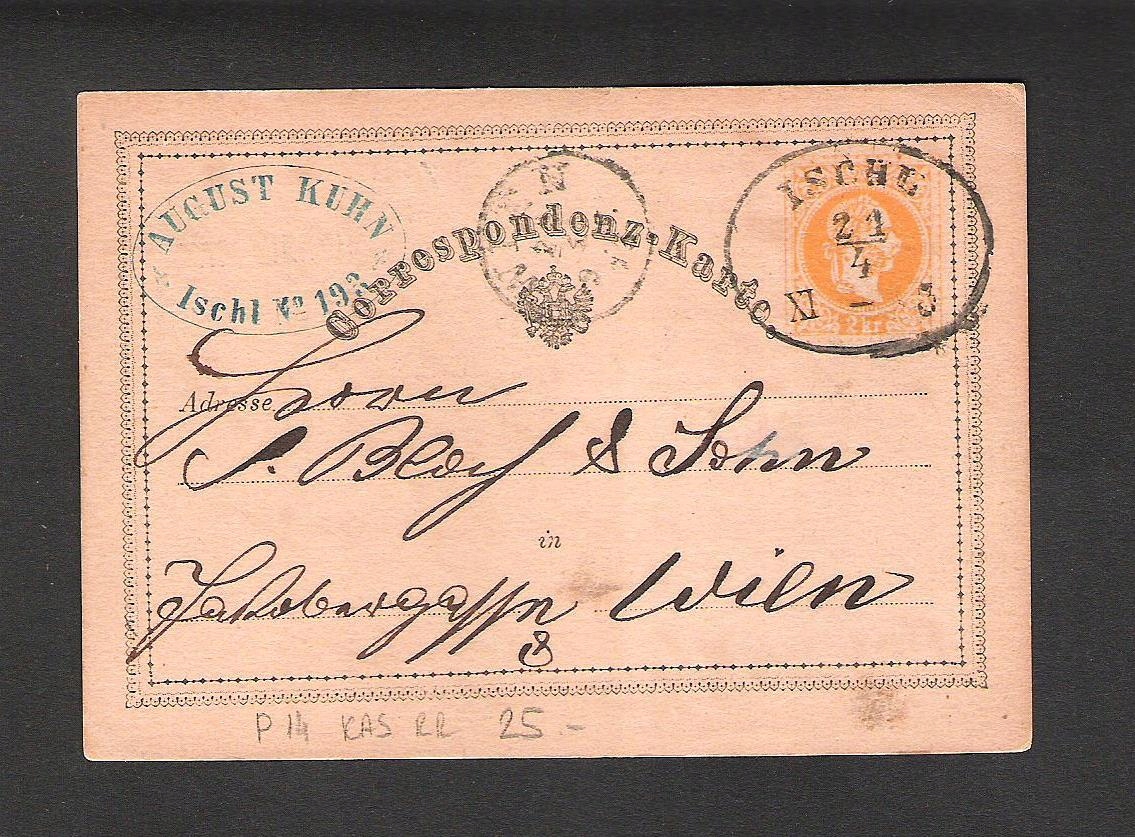 AUGUST KUHN
Ischl No 193
Correspondenz-Karte.
ISCHL
21
4
XI
2 kr
Adresse
Herrn
S. Bloch & Sohn
in
Jakobergasse Wien
8
P 14 KAS RR 25.-